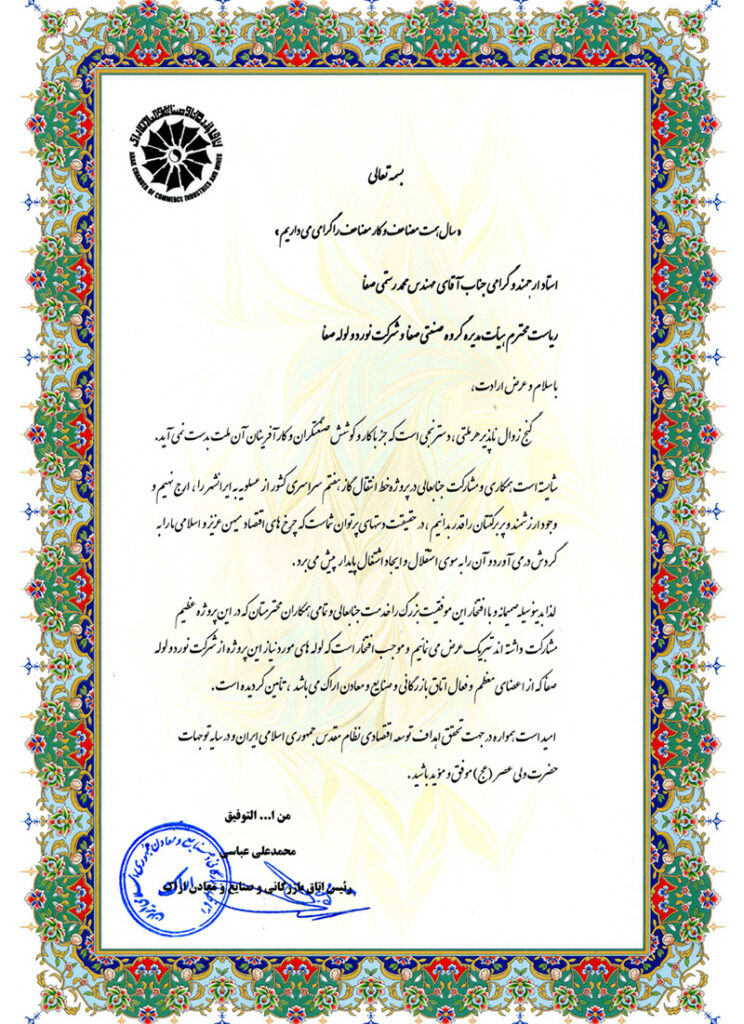 ARAK CHAMBER OF COMMERCE INDUSTRIES AND MINES
بسمه تعالی
«سال همت مضاعف و کار مضاعف را گرامی می داریم»
استاد ارجمند و گرامی جناب آقای مهندس محمد رستمی صفا
ریاست محترم هیأت مدیره گروه صنعتی صفا و شرکت نورد و لوله صفا
با سلام و عرض ارادت،
گنج زوال ناپذیر هر ملتی، دسترنجی است که جز با کار و کوشش صنعتگران و کارآفرینان آن ملت بدست نمی آید.
شایسته است همکاری و مشارکت جنابعالی در پروژه خط انتقال گاز هفتم سراسری کشور از عسلویه به ایرانشهر را، ارج نهیم و
وجود ارزشمند و پربرکتتان را قدر بدانیم، در حقیقت دستهای پرتوان شماست که چرخ های اقتصاد میهن عزیز و اسلامی ما را به
گردش در می آورد و آن را به سوی استقلال و ایجاد اشتغال پایدار پیش می برد.
لذا بدینوسیله صمیمانه و با افتخار این موفقیت بزرگ را خدمت جنابعالی و تمامی همکاران محترمتان که در این پروژه عظیم
مشارکت داشته اند تبریک عرض می نمائیم و موجب افتخار است که لوله های مورد نیاز این پروژه از شرکت نورد و لوله
صفا که از اعضای معظم و فعال اتاق بازرگانی و صنایع و معادن اراک می باشد، تأمین گردیده است.
امید است همواره در جهت تحقق اهداف توسعه اقتصادی نظام مقدس جمهوری اسلامی ایران و در سایه توجهات
حضرت ولی عصر (عج) موفق و مؤید باشید.
من ا... التوفیق
محمدعلی عباسی
رئیس اتاق بازرگانی و صنایع و معادن اراک
اراک